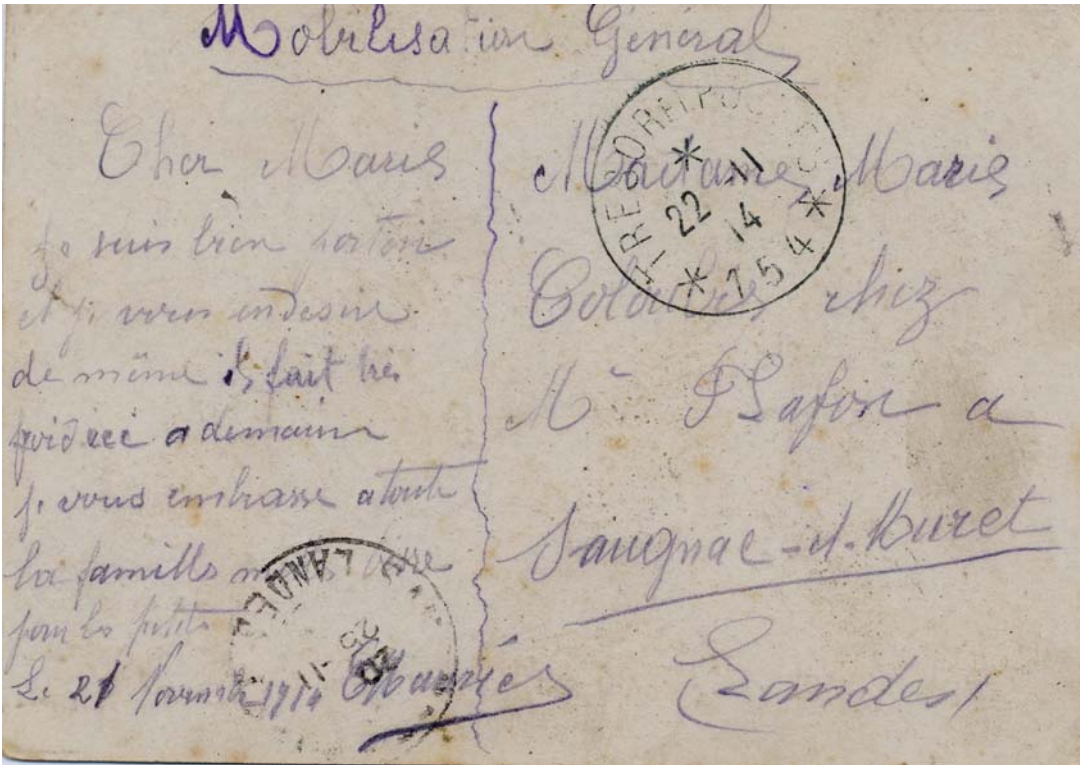 Mobilisation Général
Cher Marie
je suis bien portan
et je vous en desire
de même il fait très
froid ici a demain
je vous embrasse a toute
la famille
pour les petits
Le 21 Novembre 1914
TRESOR ET POSTES
22 11
14
* 154 *
Madame Marie
chez
Mr Lafon a
Saugnac-et-Muret
Landes
LANDES
25 -11